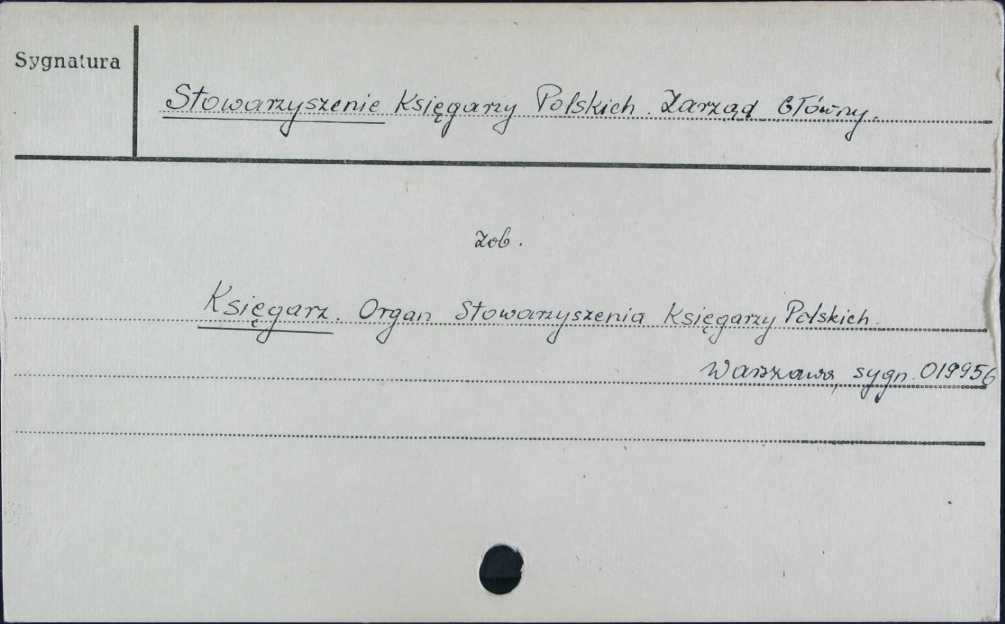 Sygnatura
Stowarzyszenie Księgarzy Polskich. Zarząd Główny.
Zob.
Księgarz. Organ Stowarzyszenia Księgarzy Polskich.
Warszawa, sygn. 019956